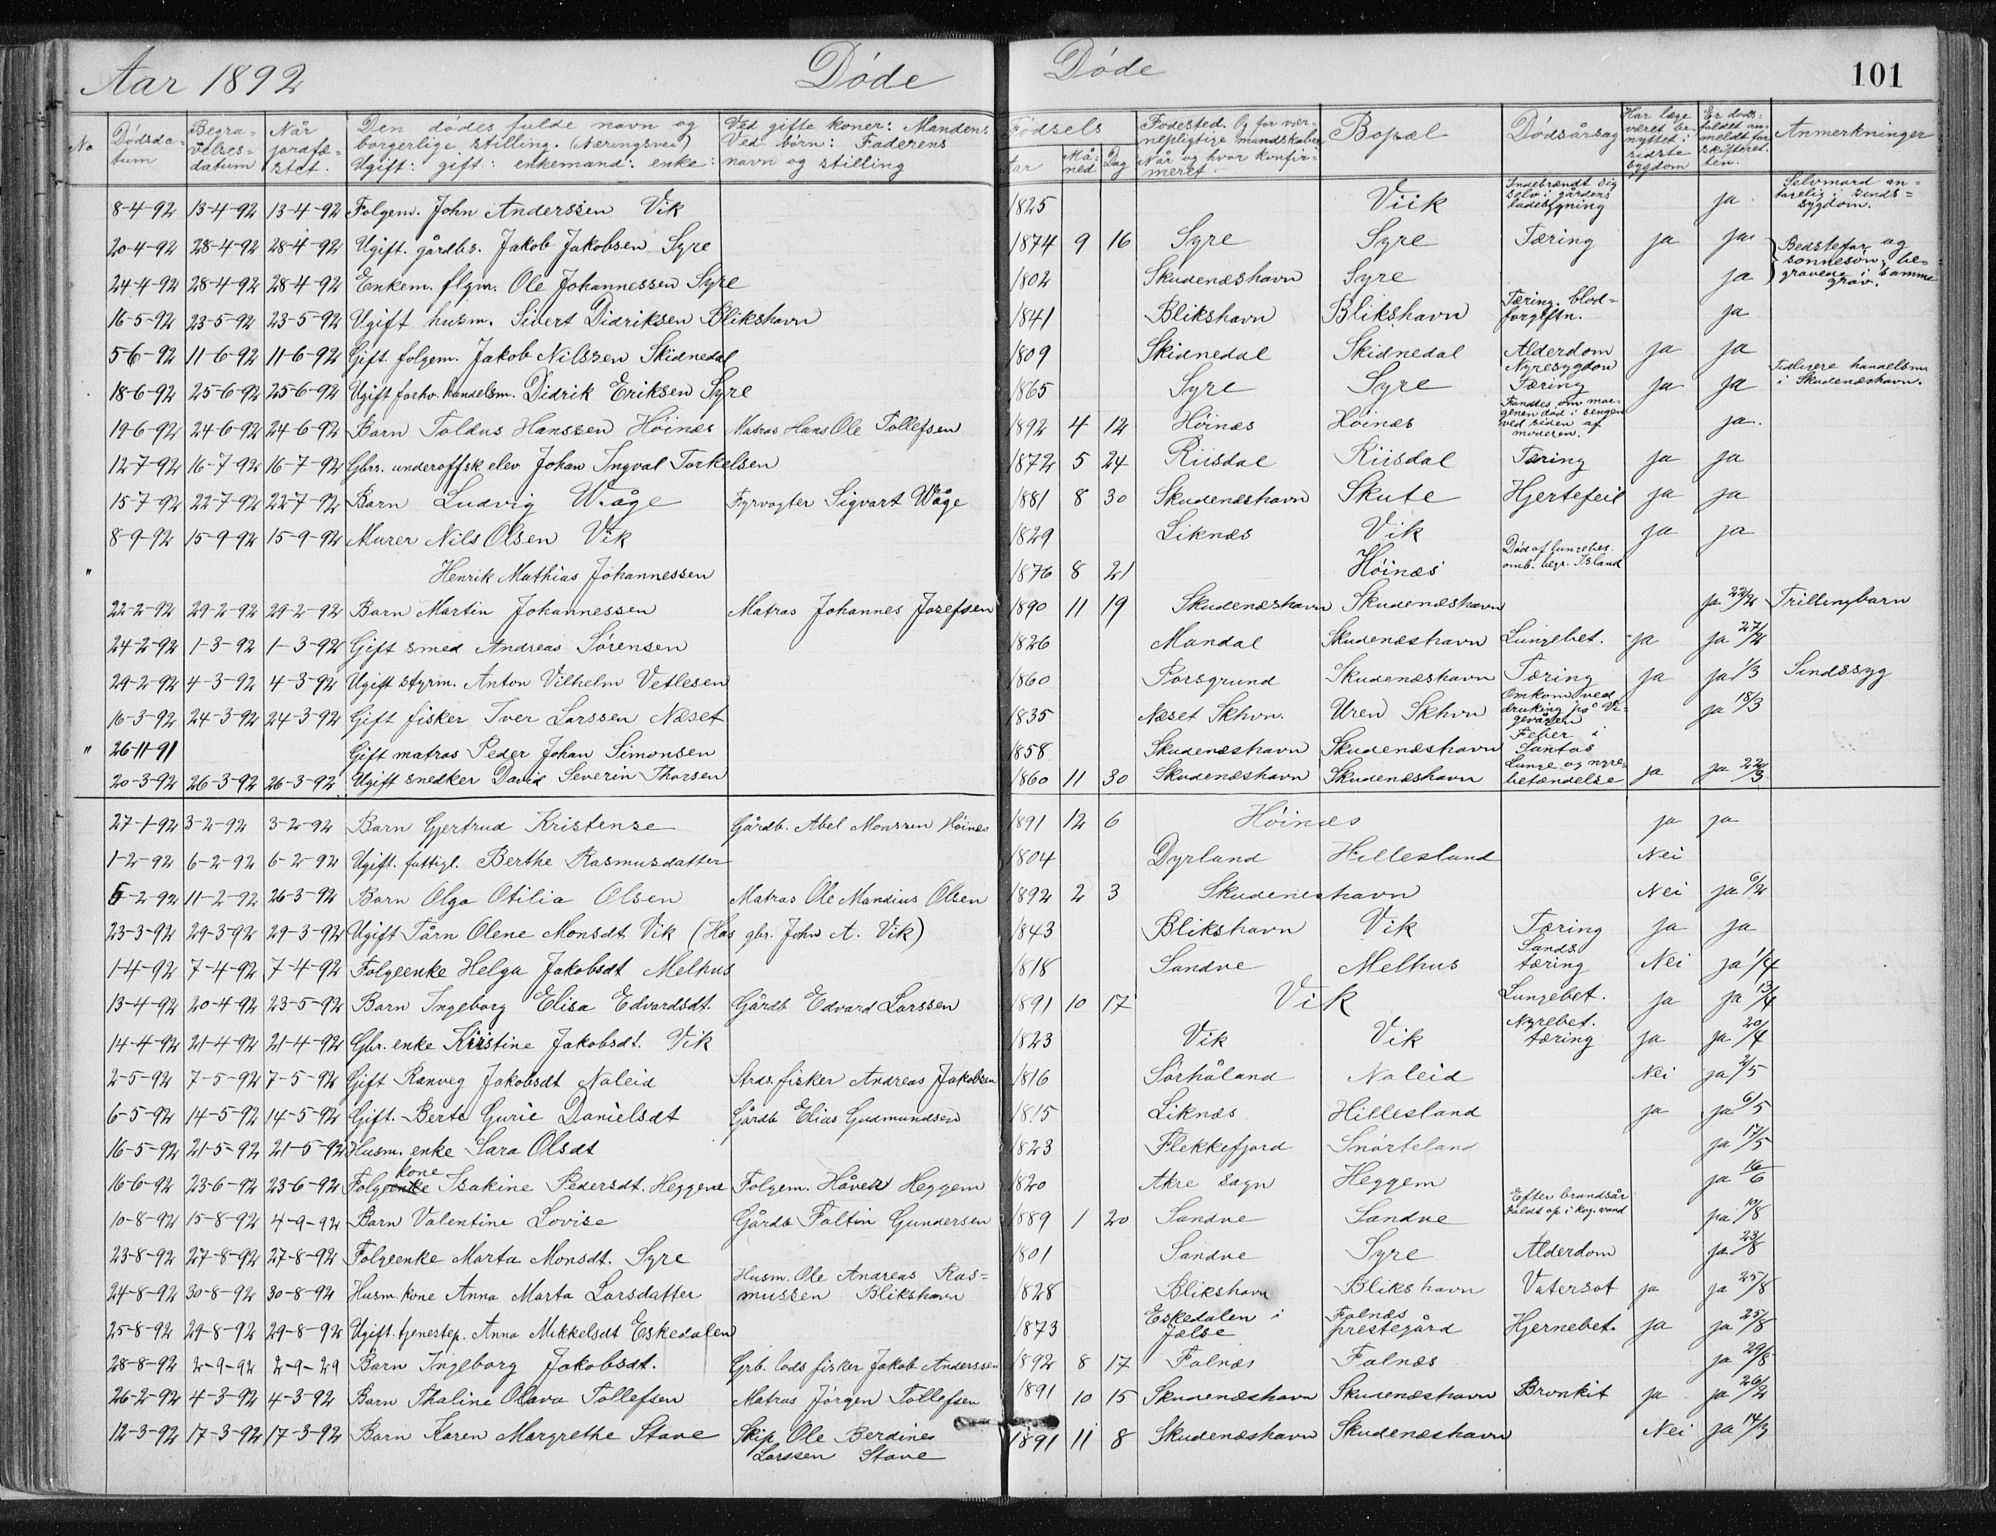 Aar 1892 Døde Døde 101
No Dødsda- Begra- Når Den dødes fulde navn og Ved gifte koner: Mandens Fødsels Fødested. Og for vær- Bopæl Dødsårsag Har læge Er døds- Anmerkninger
tum velses- jordfæ- borgerlige stilling. (Næringsvei) Ved børn: Faderens Aar Må- Dag nepligtige mandskaber været be- faldet an-
datum stet. Ugift: gift: enkemand: enke: navn og stilling ned Når og hvor konfir- nyttet i meldt for
meret. sidste skifteret-
sygdom ten.
8-4-92 13-4-92 13-4-92 Folgem. John Anderssen Vik 1825 Viik Indebrændt sig selv i gårdens ladebygning ja Selvmord an- tagelig i sinds- sygdom.
20-4-92 28-4-92 28-4-92 Ugift. gårdbs. Jakob Jakobsen Syre 1874 9 16 Syre Syre Tæring ja ja Bedstefar og
24-4-92 28-4-92 28-4-92 Enkem. flgm. Ole Johannessen Syre 1802 Skudenæshavn Syre ja sønnesøn, be- gravene i samme grav.
16-5-92 23-5-92 23-5-92 Ugift husm. Sivert Didriksen Blikshavn 1841 Blikshavn Blikshavn Tæring. blod- forgiftn. ja
5-6-92 11-6-92 11-6-92 Gift. folgem. Jakob Nilssen Skidnedal 1809 Skidnedal Skidnedal Alderdom ja ja
18-6-92 25-6-92 25-6-92 Ugift forhv. handelsm. Didrik Eriksen Syre 1865 Syre Syre Nyresygdom Tæring ja ja Tidligere handelsm. i Skudenæshavn.
19-6-92 24-6-92 24-6-92 Barn Toldus Hanssen Høinæs Matros Hans Ole Tollefsen 1892 4 12 Høinæs Høinæs Fandtes om mor- genen død i sengen ved siden af moderen. ja.
12-7-92 16-7-92 16-7-92 Gbrs. underoffsk elev Johan Ingval Torkelsen 1872 5 24 Riisdal Riisdal Tæring ja ja
15-7-92 22-7-92 22-7-92 Barn Ludvig Wåge Fyrvogter Sigvart Wåge 1881 8 30 Skudenæshavn Skute Hjertefeil ja ja
8-9-92 15-9-92 15-9-92 Murer Nils Olsen Vik 1829 Liknæs Vik ja ja
" Henrik Mathias Johannessen 1876 8 21 Høinæs Død af lungebet. omb. begr. Island
22-2-92 29-2-92 29-2-92 Barn Martin Johannessen Matros Johannes Josefsen 1890 11 19 Skudenæshavn Skudenæshavn ja 22/2 Trillingbarn
24-2-92 1-3-92 1-3-92 Gift smed Andreas Sørensen 1826 Mandal Skudenæshavn Lungebet. ja ja 27/2
29-2-92 4-3-92 4-3-92 Ugift styrm. Anton Vilhelm Vetlesen 1860 Porsgrund Skudenæshavn Tæring ja ja 1/3 Sindssyg
16-3-92 24-3-92 24-3-92 Gift fisker Iver Larssen Næset 1835 Næset Skhvn. Uren Skhvn Omkom ved drukning på ja 18/3
" 26-11-91 Gift matros Peder Johan Simonsen 1858 Skudenæshavn Skudenæshavn Feber i Santos
20-3-92 26-3-92 26-3-92 Ugift snedker David Severin Thorsen 1860 11 30 Skudenæshavn Skudenæshavn Lunge og nyre- betændelse ja ja 22/3
27-1-92 3-2-92 3-2-92 Barn Gjertrud Kristense Gårdb. Abel Monssen Høinæs 1891 12 6 Høinæs ja ja
1-2-92 6-2-92 6-2-92 Ugift. fattigl. Berthe Rasmusdatter 1804 Dyrland Hillesland Nei
5-2-92 11-2-92 26-3-92 Barn Olga Otilia Olsen Matros Ole Mandius Olsen 1892 2 3 Skudeneshavn Nei ja 6/2
23-3-92 29-3-92 29-3-92 Ugift Tårn Olene Monsdt. Vik (Hos gbr. John A. Vik) 1843 Blikshavn Vik Tæring ja ja
1-4-92 7-4-92 7-4-92 Folgeenke Helga Jakobsdt Melhus 1818 Sandve Melhus Sands. tæring Nei ja 1/4
13-4-92 20-4-92 23-5-92 Barn Ingeborg Elisa Edvardsdt. Gårdb Edvard Larssen 1891 10 17 Vik Lungebet. ja ja 13/4
14-4-92 21-4-92 21-4-92 Gbr. enke Kristine Jakobsdt. Vik 1823 Vik Vik Nyrebet. tæring ja ja 20/4
2-5-92 7-5-92 7-5-92 Gift Ranveg Jakobsdt Naleid Strds. fisker Andreas Jakobsen 1816 Sørhåland Naleid Nei ja 2/5
6-5-92 14-5-92 14-5-92 Gift. Berta Gurie Danielsdt Gårdb Elias Gudmundsen 1815 Liknæs Hillesland ja ja 6/5
16-5-92 21-5-92 21-5-92 Husm. enke Sara Olsdt 1823 Flekkefjord Snørteland ja 17/5
16-6-92 23-6-92 23-6-92 Folgeenke kone Isakine Pedersdt. Heggem Folgem. Håver Heggem 1820 Akre sogn Heggem ja 16/6
10-8-92 15-8-92 4-9-92 Barn Valentine Lovise Gårdb Faltin Gundersen 1889 1 20 Sandve Sandve Efter brandsår Faldt op i kog. vand ja 10/8
23-8-92 27-8-92 27-8-92 Folgeenke Marta Monsdt. Syre 1801 Sandve Syre Alderdom ja 23/8
24-8-92 30-8-92 30-8-92 Husm. kone Anna Marta Larsdatter Husm. Ole Andreas Ras- mussen Blikshavn 1828 Blikshavn Blikshavn Vatersot ja ja 25/8
25-8-92 29-8-92 29-8-92 Ugift. tjenestep. Anna Mikkelsdt Eskedalen 1873 Eskedalen i Jælse Falnæs prestegård Hjernebet. ja ja 25/8
28-8-92 2-9-92 2-9-29 Barn Ingeborg Jakobsdt. Grb. lods fisker Jakob Anderssen 1892 8 17 Falnæs Falnæs ja 29/8
26-2-92 4-3-92 4-3-92 Barn Thaline Olava Tollefsen Matros Jørgen Tollefsen 1891 10 15 Skudenæshavn Skudenæshavn Bronkit ja ja 26/2
12-3-92 17-3-92 17-3-92 Barn Karen Margrethe Stave Skip. Ole Berdines Larssen Stave 1891 11 8 Skudenæshavn Skudenæshavn Nei ja 14/3